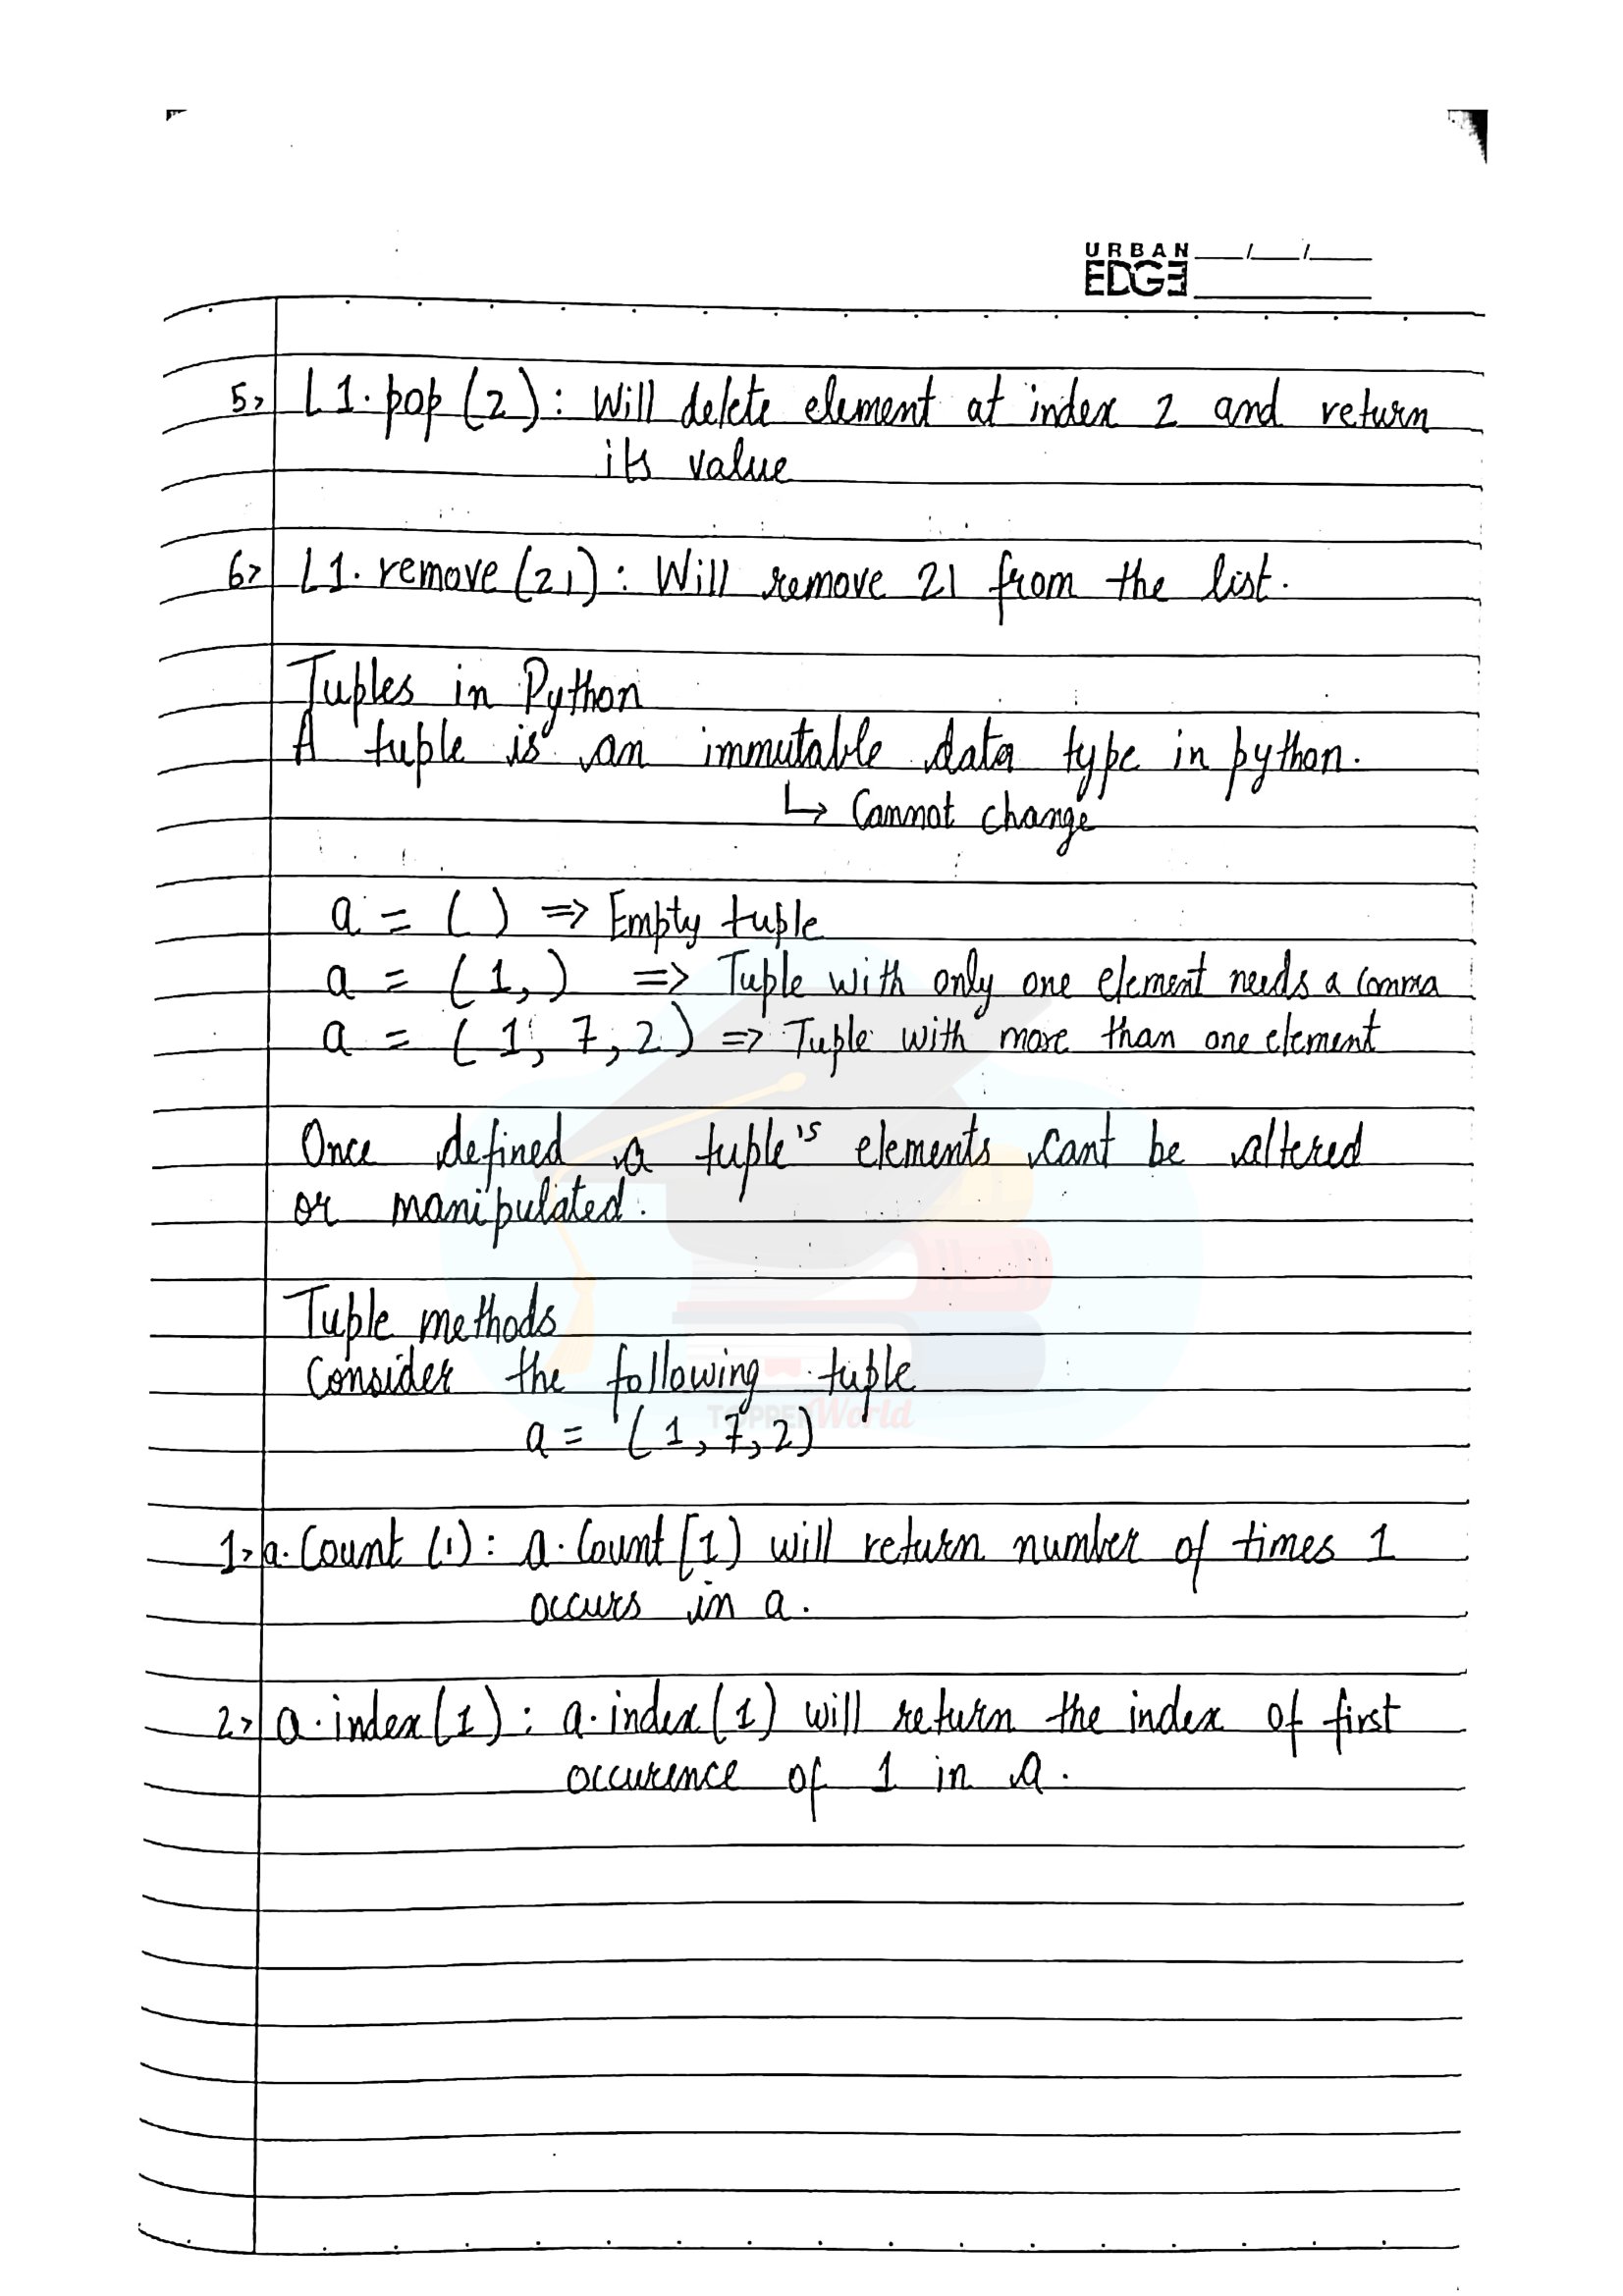 URBAN
EDGE
5> L1.pop(2): Will delete element at index 2 and return
its value
6> L1.remove(21): Will remove 21 from the list.
Tuples in Python
A tuple is an immutable data type in python.
↳ Cannot change
a = ( ) => Empty tuple
a = (1,) => Tuple with only one element needs a comma
a = (1, 7, 2) => Tuple with more than one element
Once defined a tuple's elements cant be altered
or manipulated.
Tuple methods
Consider the following tuple
TOPPERWorld
a = (1, 7, 2)
1> a.Count (1): a.Count[1) will return number of times 1
occurs in a.
2> a.index(1): a.index(1) will return the index of first
occurence of 1 in a.